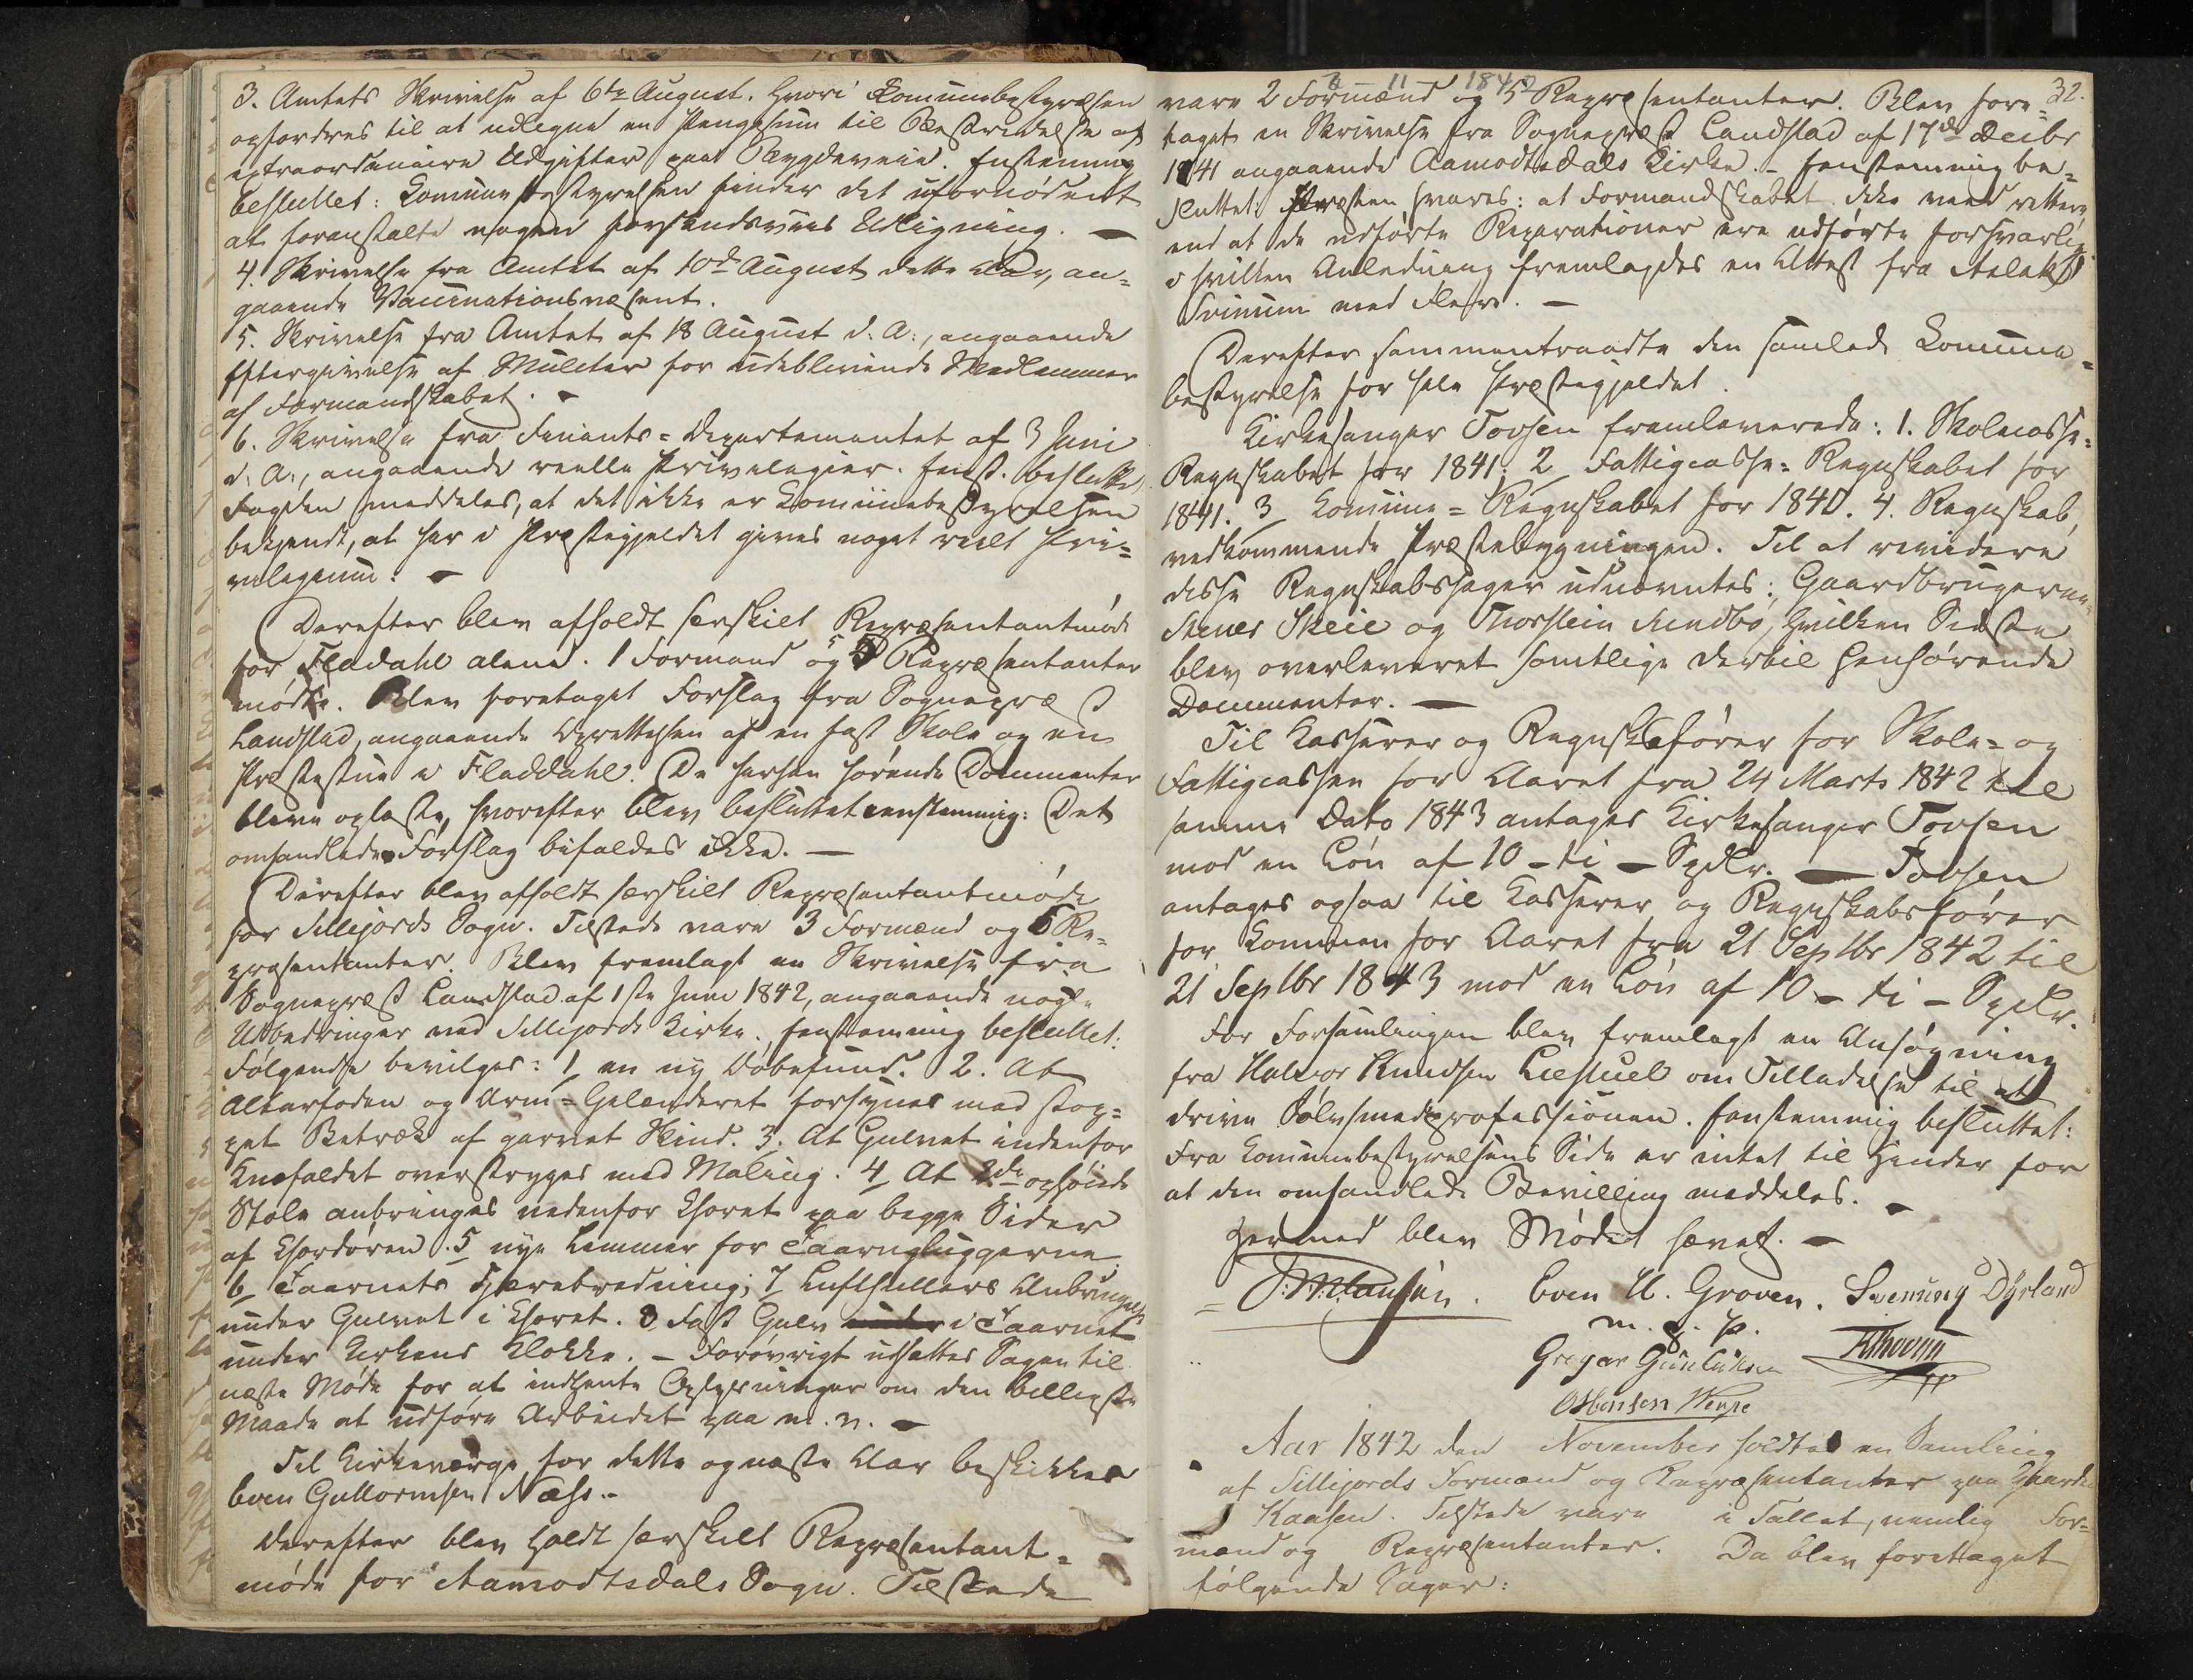 3. Amtets Skrivelse af 6te August. Hvori Komunebestyrelsen
opfordres til at udlegne en Pengesum til Bestridelse af
extraordinaire Udgifter paa Bygdeveie. Enstemmig
besluttet: Komunebestyrelsen finder det ufornödent
at foranstalte nogen forskudsviis Udligning. —
4. Skrivelse fra Amtet af 10de August dette Aar, an=
gaaende Vaccinationsvæsent.
5. Skrivelse fra Amtet af 18 August d: A:, angaaende
Eftergivelse af Mulcter for udeblivende Medlemmer
af Formandskabet. -
6. Skrivelse fra Finants=Departementet af 3 Juni
d: A:, angaaende reelle Privelegier. Enst. besluttet,
Fogden meddeles, at det ikke er Komünebestyrelsen
bekjendt, at her i Præstegjeldet gives noget reelt Pri=
velegium: -
Derefter blev afholdt særskilt Repræsentantmöde
for Fladahl alene. 1 Formand og 5 Repræsentanter
mödte. Blev foretaget Forslag fra Sognepræst
Landstad, angaaende Oprettelsen af en fast Skole og en
Præstestue i Fladdahl. De herhen hörende Documenter
bleve oplæste, hvorefter blev besluttet enstemmig: Det
omhandlede Forslag bifaldes ikke. —
Derefter blev afholdt særskilt Repræsentantmöde
for Sillejords Sogn. Tilstede vare 3 Formænd og 6 Re=
præsentanter. Blev fremlagt en Skrivelse fra
Sognepræst Landstad af 1ste Juni 1842, angaaende nogle
Udbedringer ved Sillejords Kirke. Enstemmig besluttet:
Fölgende bevilges: 1, en ny Döbefund. 2. At
Alterfoden og Arm=Gelænderet forsynes med stop=
pet Betræk af garvet Skind. 3. At Gulvet indenfor
Knefaldet overstryges med Maling. 4, At 2de ophöiede
Stole anbringes nedenfor Choret paa begge Sider
af Chordören. 5, nye Lemmer for Taarngluggerne
6, Taarnets Tjærebredning; 7, Lufthullers Anbringelse
under Gulvet i Choret. 8, Fast Gulv under i Taarnet
under Kirkens Klokke. - Forövrigt udsættes Sagen til
næste Möde for at indhente Oplysninger om den billigste
Maade at udföre Arbeidet paa m. v. -
Til Kirkeværge for dette og næste Aar beskikkes
Even Gullormsen Næss.-
Derefter blev holdt særskilt Repræsentant=
möde for Aamodtsdals Sogn. Tilstede
7 - 11 - 1842
32.
vare 2 Formænd og 5 Repræsentanter. Blev fore=
taget en Skrivelse fra Sognepræst Landstad af 17de Decbr
1841 angaaende Aamodtsdals Kirke. - Enstemmig be=
sluttet: Præsten svares: at Formandskabet ikke veed rettere,
end at de udförte Reparationer ere udförte forsvarlig
i hvilken Anledning fremlagdes en Attest fra Aslak
Svinum med Flere. —
Derefter sammentraadte den samlede Komune=
bestyrelse for hele Præstegjeldet.
Kirkesanger Tovsen fremleverede: 1. Skolecasse=
Regnskabet for 1841; 2, Fattigcasse=Regnskabet for
1841. 3, Komüne=Regnskabet for 1840. 4. Regnskab,
vedkommende Præstebygningen. Til at revidere
disse Regnskabssager udnævntes: Gaardbrugerne
Stener Skeie og Thorstein Sundbö, hvilken Sidste
blev overleveret samtlige dertil henhörende
Documenter. —
Til Kasserer og Regnskabförer for Skole= og
Fattigcassen for Aaret fra 24 Marts 1842 til
samme Dato 1843 antages Kirkesanger Tovsen
mod en Lön af 10 - ti - Spdlr. — Tovsen
antages ogsaa til Kasserer og Regnskabsförer
for Kommunen for Aaret fra 21 Septbr 1842 til
21 Septbr 1843 mod en Lön af 10 - ti - Spdlr.
For Forsamlingen blev fremlagt en Ansögning
fra Halvor Knudsen Liestuel om Tilladelse til at
drive Sölvsmedprofessionen. Enstemmig besluttet:
Fra Komunebestyrelsens Side er intet til Hinder for
at den omhandlede Bevilling meddeles. -
Hermed blev Mödet hævet. -
Even H. Groven. Svenung Dyrland
m. f. P.
Gregar Gunleiksen
Aar 1842 den November holdtes en Samling
af Sillejords Formænd og Repræsentanter paa Gaarden
Kaasen. Tilstede vare i Tallet, nemlig For=
mænd og Repræsentanter. Da blev foretaget
fölgende Sager: